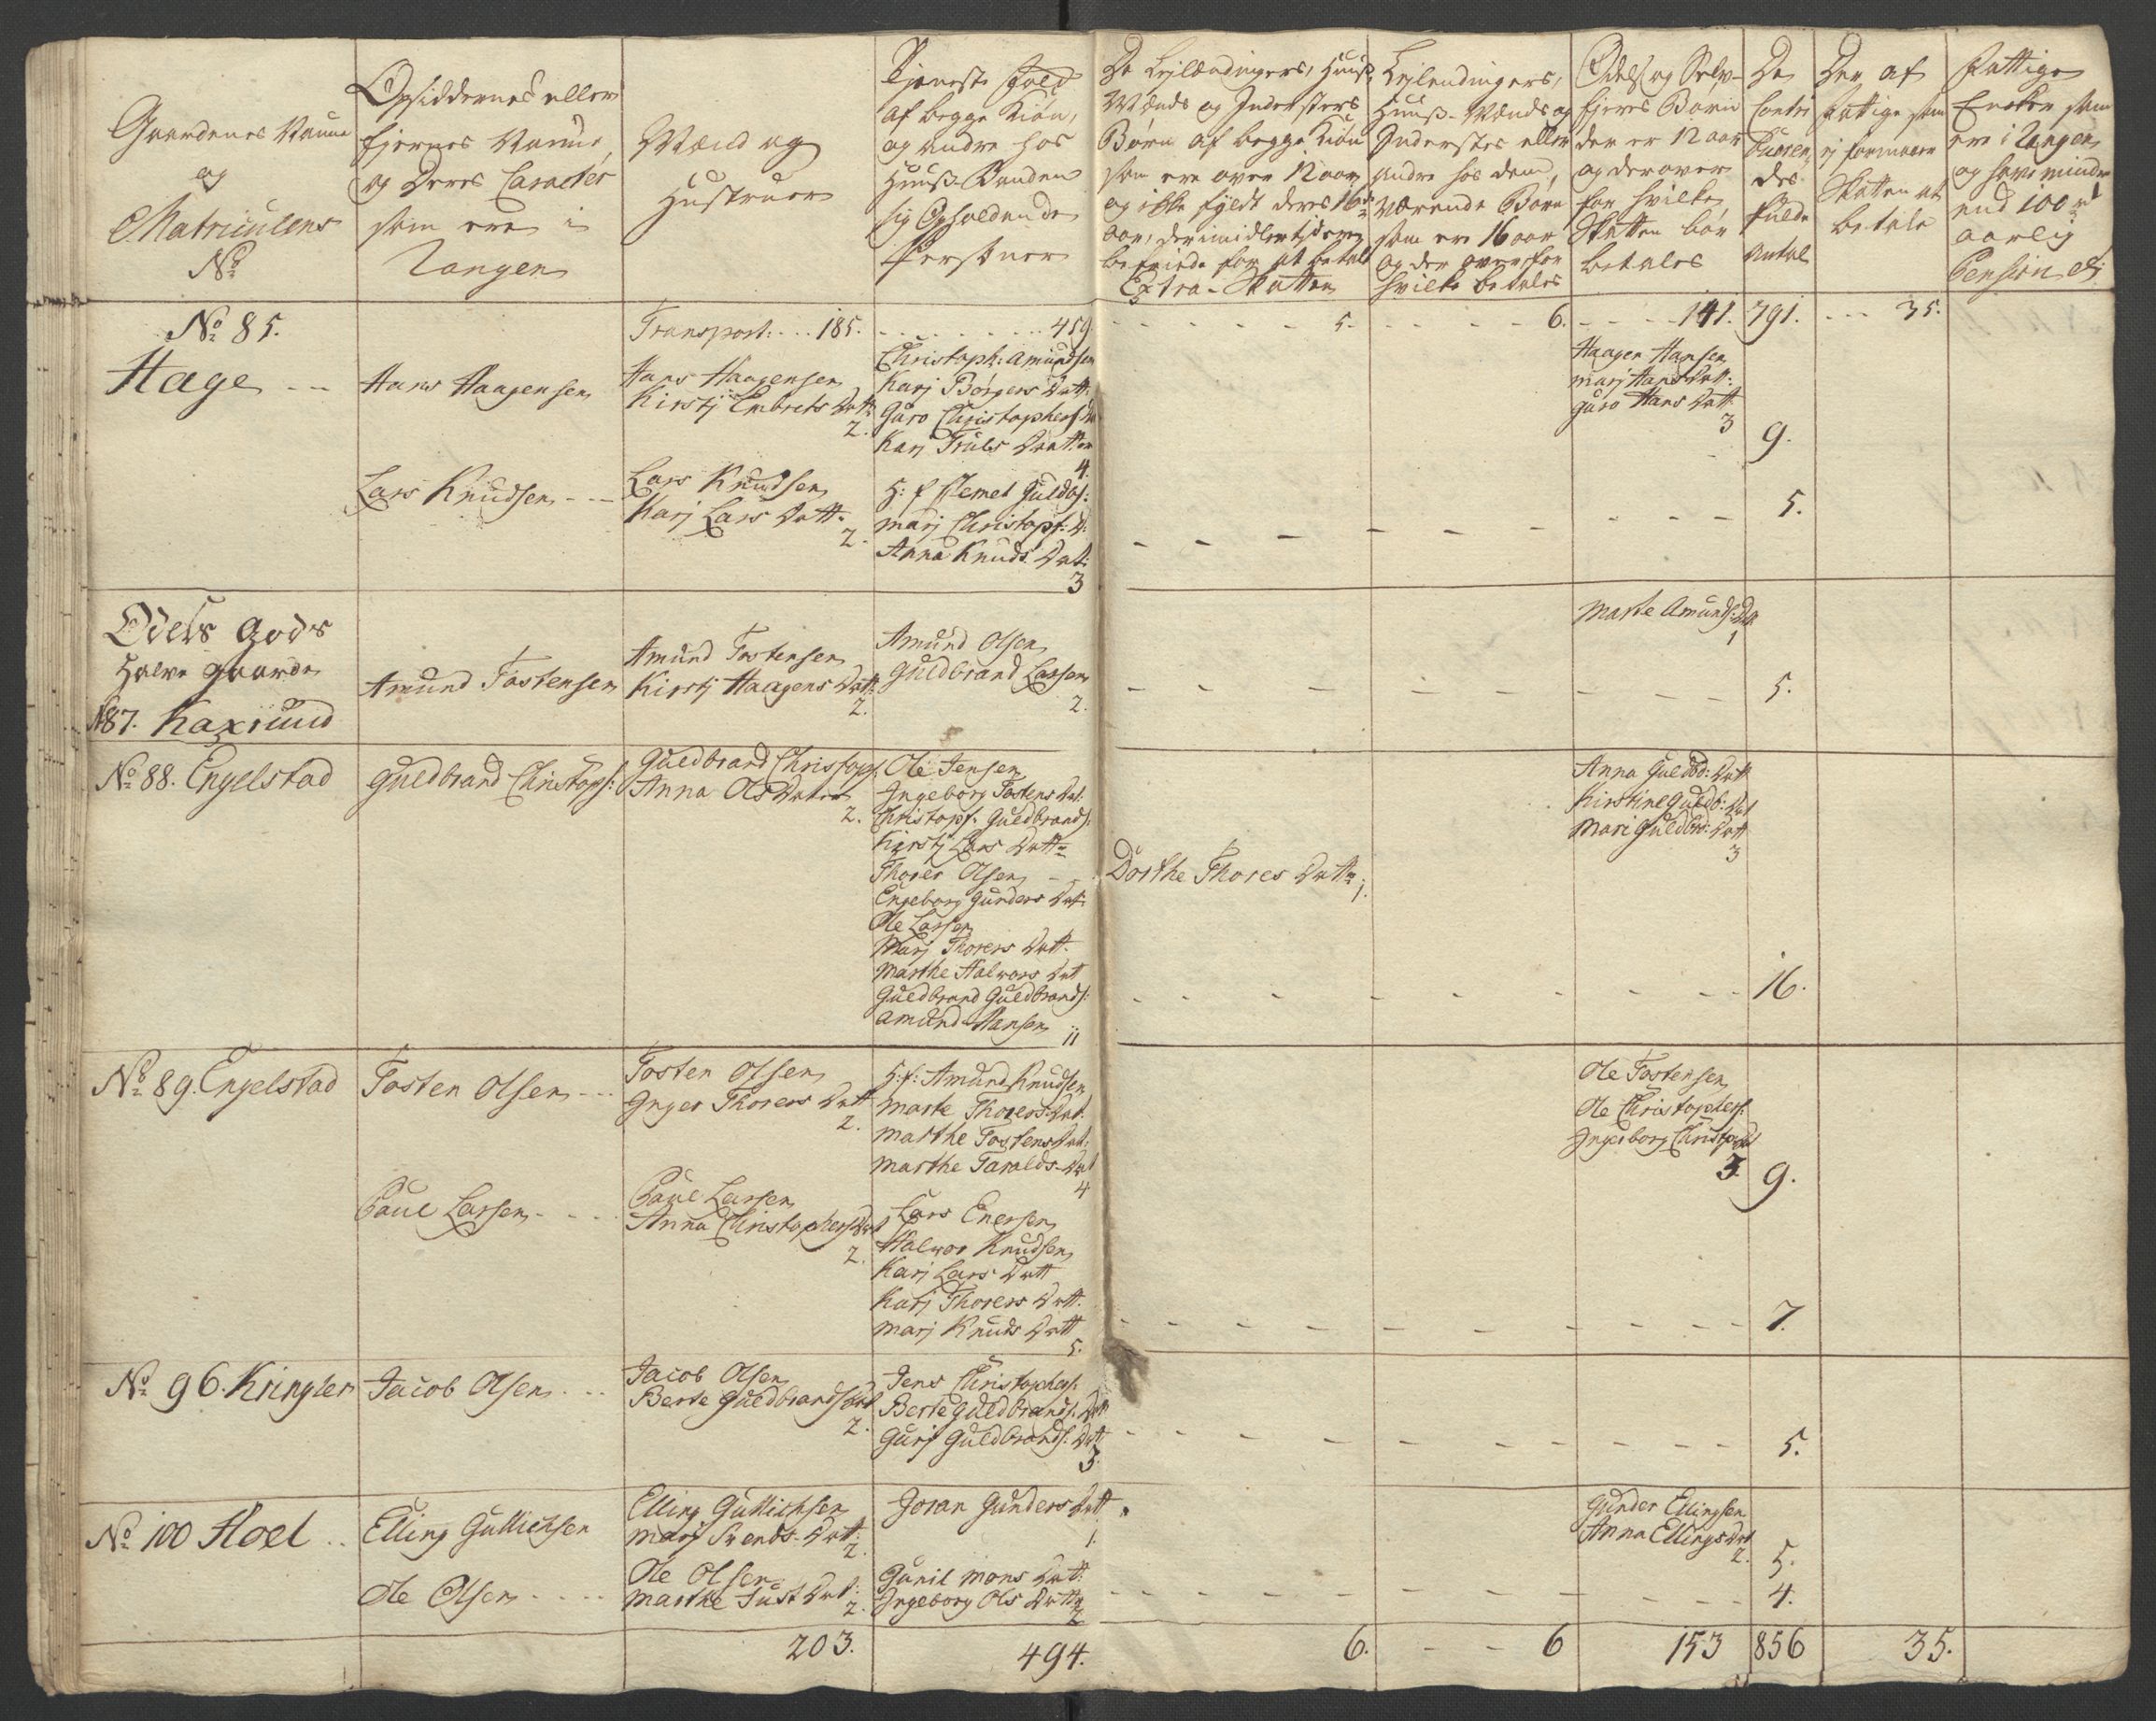 Gaardenes Naune
og
Matriculens
No
Opsiddernes eller
Ejernes Naune,
og Deres Caracter
som ere i
Langen
Mænd og
Hustruer
Tjeneste Folk
af begge Kiøn,
og andre hos
Huus-Bonden
sig Opholdende
Persohner
De Lejlændingers, Huus-
Mænds og Inderster
Børn af begge Kiøn
som ere over 12 aar
og ikke fyldt deres 16de
aar, der imidlertid ere
befriede for at betale
Extra-Skatten
Lejlendingers,
Huus-Mænds og
Inderster eller
andre hos dem,
Værende Børn
som ere 16 aar
og der over for
hvilke betales
Odels og Selv-
Ejeres Børn
der er 12 aar
og derover
for hvilke
Skatten bør
betales
De
Contri
bueren
des
fulde
Antal
Der af
fattige som
ej formaaer
Skatten at
betale
Fattige
Encker som
ere i Langen
og have mindre
end 100 rd
aarlig
Pension
No 85.
Transport: . . . 185. . . . . . . . 459. - - - - - 5. - - - - 6. - - - 141. 791. - - - 35.
Hage - -
Hans Haagensen
Hans Haagensen
Kirstj Embrets Datt:
2.
Christoph: Amundsen
Karj Børgers Datt:
Guro Christophers Da
Karj Truls Datter
4.
Haagen Hansen
marj Hans Datt:
guro Hans Datt
3
9.
Lars Knudsen - -
Lars Knudsen
Karj Lars Datt:
2.
H: f Clemet Guldbs:
marj Christopf: D:
Anna Knuds Dat:
3
- - - - - - - - 5.
Odels Gods
Halve gaarde
No 87. Kaxrud
Amund Tostensen
Amund Tostensen
Kirstj Haagens Datt:
2.
Amund Olsen
Guldbrand Larsen
2.
Marte Amunds: Dat
1
- - - - - - - - 5.
No 88. Engelstad
Guldbrand Christops:
Guldbrand Christops:
Anna Ols Dater
2.
Ole Jensen
Ingeborg Tostens Dat:
Christopf: Guldbrands:
Kirstj Lars Datt:
Thores Olsen - -
Engeborg Gunders Dat:
Ole Larsen
Marj Thorers Datt.
Marthe Halvors Dat
Guldbrand Guldbrands:
Amund Hansen
11
Dorthe Thores Datt:
1.
Anna Guldb: Datt
Kirstine Guldb: Dat
Mari Guldbr: Datt
3
- - - - - - - - 16.
No 89. Engelstad
Tosten Olsen - - -
Tosten Olsen
Inger Thorers Datt
2.
H: f: Amund Knudsen
Marte Thorers Dat:
Marthe Tostens Dat:
Marthe Taralds-Dat
4
Ole Tostensen
Ole Christophers:
Ingeborg Christop Dat
3.
9.
Paul Larsen - - -
Paul Larsen
Anna Christophers Dat
2.
Lars Enersen
Halvor Knudsen
Karj Lars Datt
Karj Thorers Datt.
Marj Knuds Datt
5.
- - - - - - - - 7.
No 96. Kringler
Jacob Olsen - - -
Jacob Olsen
Berte Guldbrands Dat
2.
Jens Christophers:
Berte Guldbrands: Datt
Gurj Guldbrands: Datt
3.
- - - - - - - - 5.
No 100 Hoel . .
Elling Gullichsen
Elling Gullichsen
marj Svends-Datt:
2.
Goran Gunders Datt
1.
Gunder Ellingsen
Anna Ellings Dat
2.
5.
Ole Olsen - - -
Ole Olsen
Marthe Just Dat:
2.
Gunil Mons Datt:
Ingeborg Ols Datt:
2
- - - - - - - - 4.
203. 494. 6. - - 6 153 856 35.